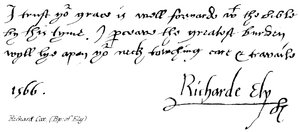 I trust yor grace is well forwards wt the bible
by this tyme. I perceave the greatest burden
wyll lye upon yor neck towching care & travaile
1566.
Richarde Ely
Richard Cox (Bp. of Ely)